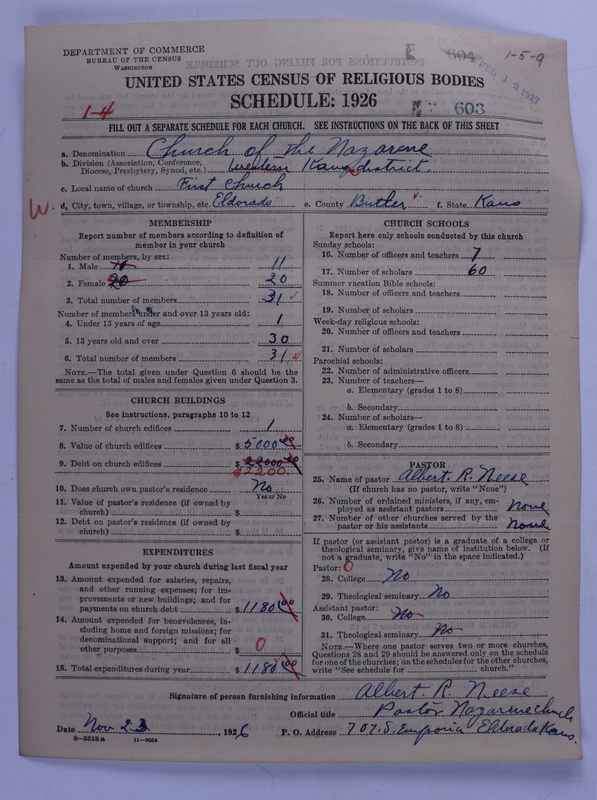 DEPARTMENT OF COMMERCE
BUREAU OF THE CENSUS
WASHINGTON
604
FEB 12 1927
1-5-9
UNITED STATES CENSUS OF RELIGIOUS BODIES
SCHEDULE: 1926
1-4
603
FILL OUT A SEPARATE SCHEDULE FOR EACH CHURCH. SEE INSTRUCTIONS ON THE BACK OF THIS SHEET
a. Denomination Church of the Nazarene
b. Division (Association, Conference, Diocese, Presbytery, Synod, etc.) Western Kans district.
c. Local name of church First Church
W. d. City, town, village, or township, etc. Eldorado e. County Butler f. State Kans
MEMBERSHIP
Report number of members according to definition of
member in your church
Number of members, by sex:
1. Male 11 11
2. Female 20 20
3. Total number of members 31
Number of members under and over 13 years old:
4. Under 13 years of age 1
5. 13 years old and over 30
6. Total number of members 31
NOTE.—The total given under Question 6 should be the
same as the total of males and females given under Question 3.
CHURCH BUILDINGS
See instructions, paragraphs 10 to 12
7. Number of church edifices 1
8. Value of church edifices $ 5000 00
9. Debt on church edifices $ 22000 00
$2200
10. Does church own pastor's residence No
Yes or No
11. Value of pastor's residence (if owned by
church) $
12. Debt on pastor's residence (if owned by
church) $
EXPENDITURES
Amount expended by your church during last fiscal year
13. Amount expended for salaries, repairs,
and other running expenses; for im-
provements or new buildings; and for
payments on church debt $ 1180 00
14. Amount expended for benevolences, in-
cluding home and foreign missions; for
denominational support; and for all
other purposes $ 0
15. Total expenditures during year $ 1180 00
CHURCH SCHOOLS
Report here only schools conducted by this church
Sunday schools:
16. Number of officers and teachers 7
17. Number of scholars 60
Summer vacation Bible schools:
18. Number of officers and teachers
19. Number of scholars
Week-day religious schools:
20. Number of officers and teachers
21. Number of scholars
Parochial schools:
22. Number of administrative officers
23. Number of teachers—
a. Elementary (grades 1 to 8)
b. Secondary
24. Number of scholars—
a. Elementary (grades 1 to 8)
b. Secondary
PASTOR
25. Name of pastor Albert R. Neese
(If church has no pastor, write "None")
26. Number of ordained ministers, if any, em-
ployed as assistant pastors None
27. Number of other churches served by the
pastor or his assistants None
If pastor (or assistant pastor) is a graduate of a college or
theological seminary, give name of institution below. (If
not a graduate, write "No" in the space indicated.)
Pastor: 0
28. College No
29. Theological seminary No
Assistant pastor:
30. College No
31. Theological seminary No
NOTE.—Where one pastor serves two or more churches,
Questions 28 and 29 should be answered only on the schedule
for one of the churches; on the schedules for the other churches,
write "See schedule for church."
Signature of person furnishing information Albert R. Neese
Official title Pastor Nazarene Church
Date Nov 23, 1926 P. O. Address 707. S. Emporia Eldorado Kans.
8-5518a 11-9024